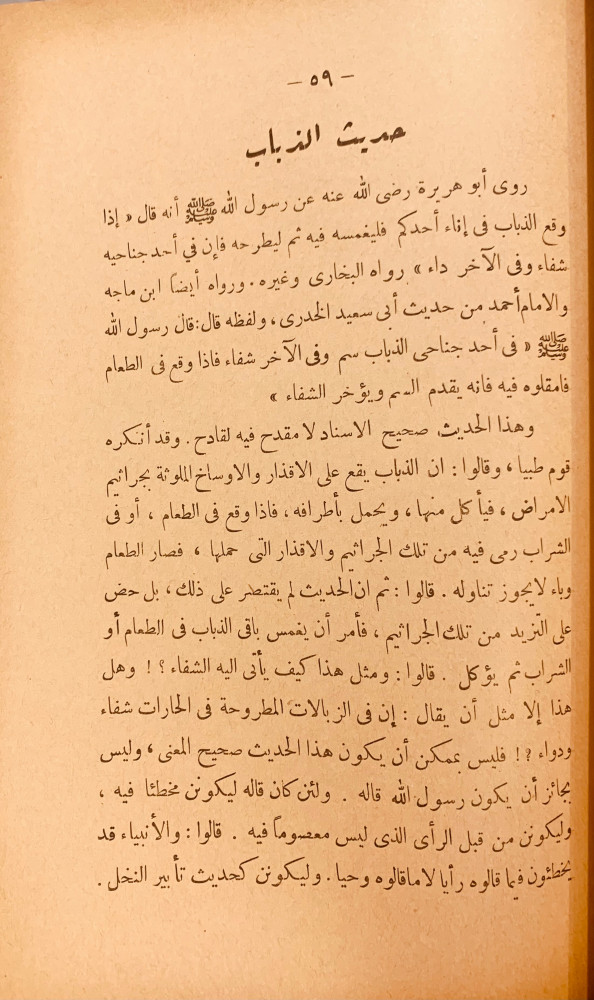 — ٥٩ —
حديث الذباب
روى أبو هريرة رضى الله عنه عن رسول الله ﷺ أنه قال « إذا
وقع الذباب فى إناء أحدكم فليغمسه فيه ثم ليطرحه فإن في أحد جناحيه
شفاء وفى الآخر داء » رواه البخارى وغيره . ورواه أيضاً ابن ماجه
والامام أحمد من حديث أبى سعيد الخدرى ، ولفظه قال : قال رسول الله
ﷺ « فى أحد جناحى الذباب سم وفى الآخر شفاء فاذا وقع فى الطعام
فامقلوه فيه فانه يقدم السم ويؤخر الشفاء »
وهذا الحديث صحيح الاسناد لا مقدح فيه لقادح . وقد أنكره
قوم طبيا ، وقالوا : ان الذباب يقع على الاقذار والاوساخ الملوثة بجراثيم
الامراض ، فيأكل منها ، ويحمل بأطرافه ، فاذا وقع فى الطعام ، أو فى
الشراب رمى فيه من تلك الجراثيم والاقذار التى حملها ، فصار الطعام
وباء لايجوز تناوله . قالوا : ثم ان الحديث لم يقتصر على ذلك ، بل حض
على التزيد من تلك الجراثيم ، فأمر أن يغمس باقى الذباب فى الطعام أو
الشراب ثم يؤكل . قالوا : ومثل هذا كيف يأتى اليه الشفاء ؟ ! وهل
هذا إلا مثل أن يقال : إن فى الزبالات المطروحة فى الحارات شفاء
ودواء ؟ ! فليس بممكن أن يكون هذا الحديث صحيح المعنى ، وليس
بجائز أن يكون رسول الله قاله . ولئن كان قاله ليكونن مخطئا فيه ،
وليكونن من قبل الرأى الذى ليس معصوماً فيه . قالوا : والأنبياء قد
يخطئون فيما قالوه رأيا لا ماقالوه وحيا . وليكونن كحديث تأبير النخل .